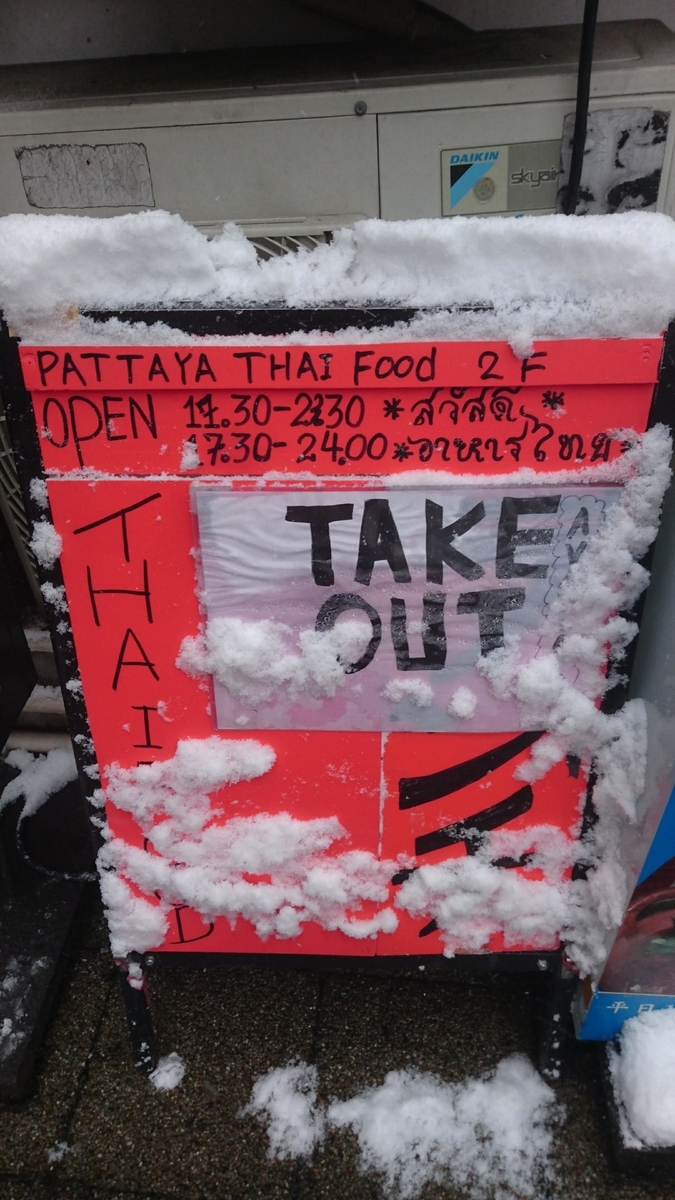 DAIKIN
skyair
PATTAYA THAI Food 2F
OPEN 11.30-2230 *สวัสดี*
17.30-24.00*อาหารไทย*
THAI
TAKE
OUT
平日